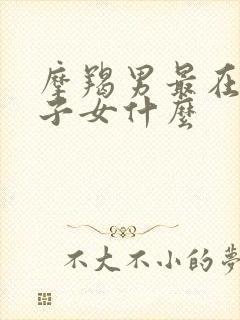 摩羯男最在
子女什麼
不大不小的夢